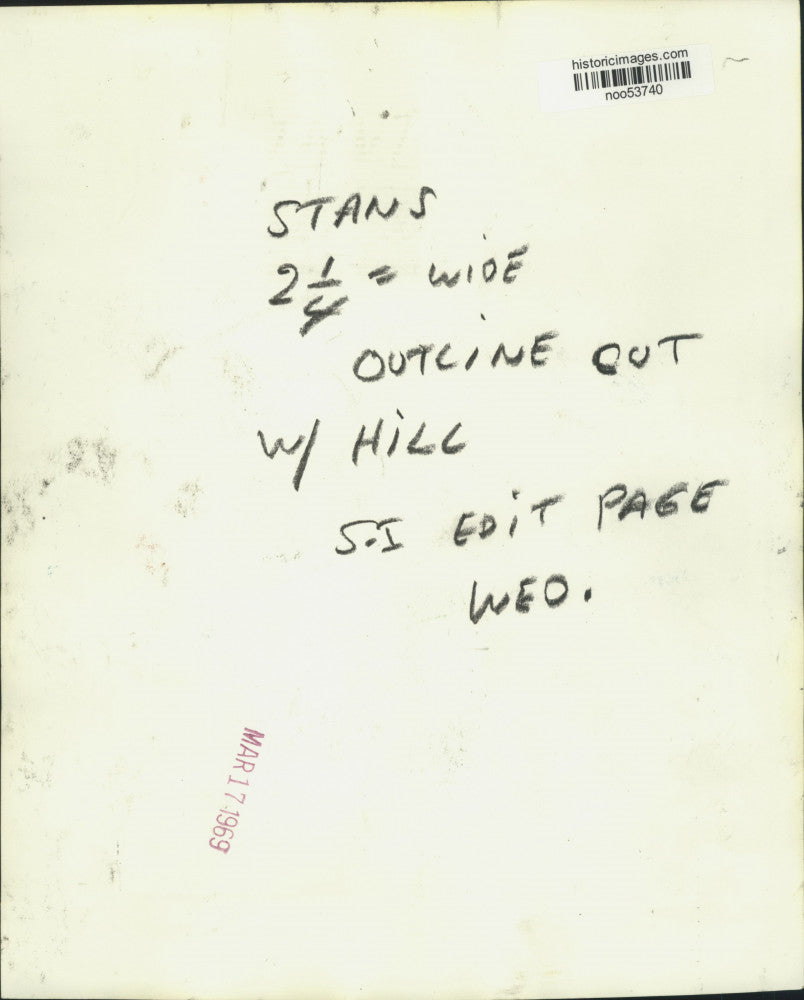 historicimages.com
noo53740
STANS
2 1/4 = WIDE
OUTLINE CUT
W/ HILL
S.I EDIT PAGE
WED.
MAR 17 1969